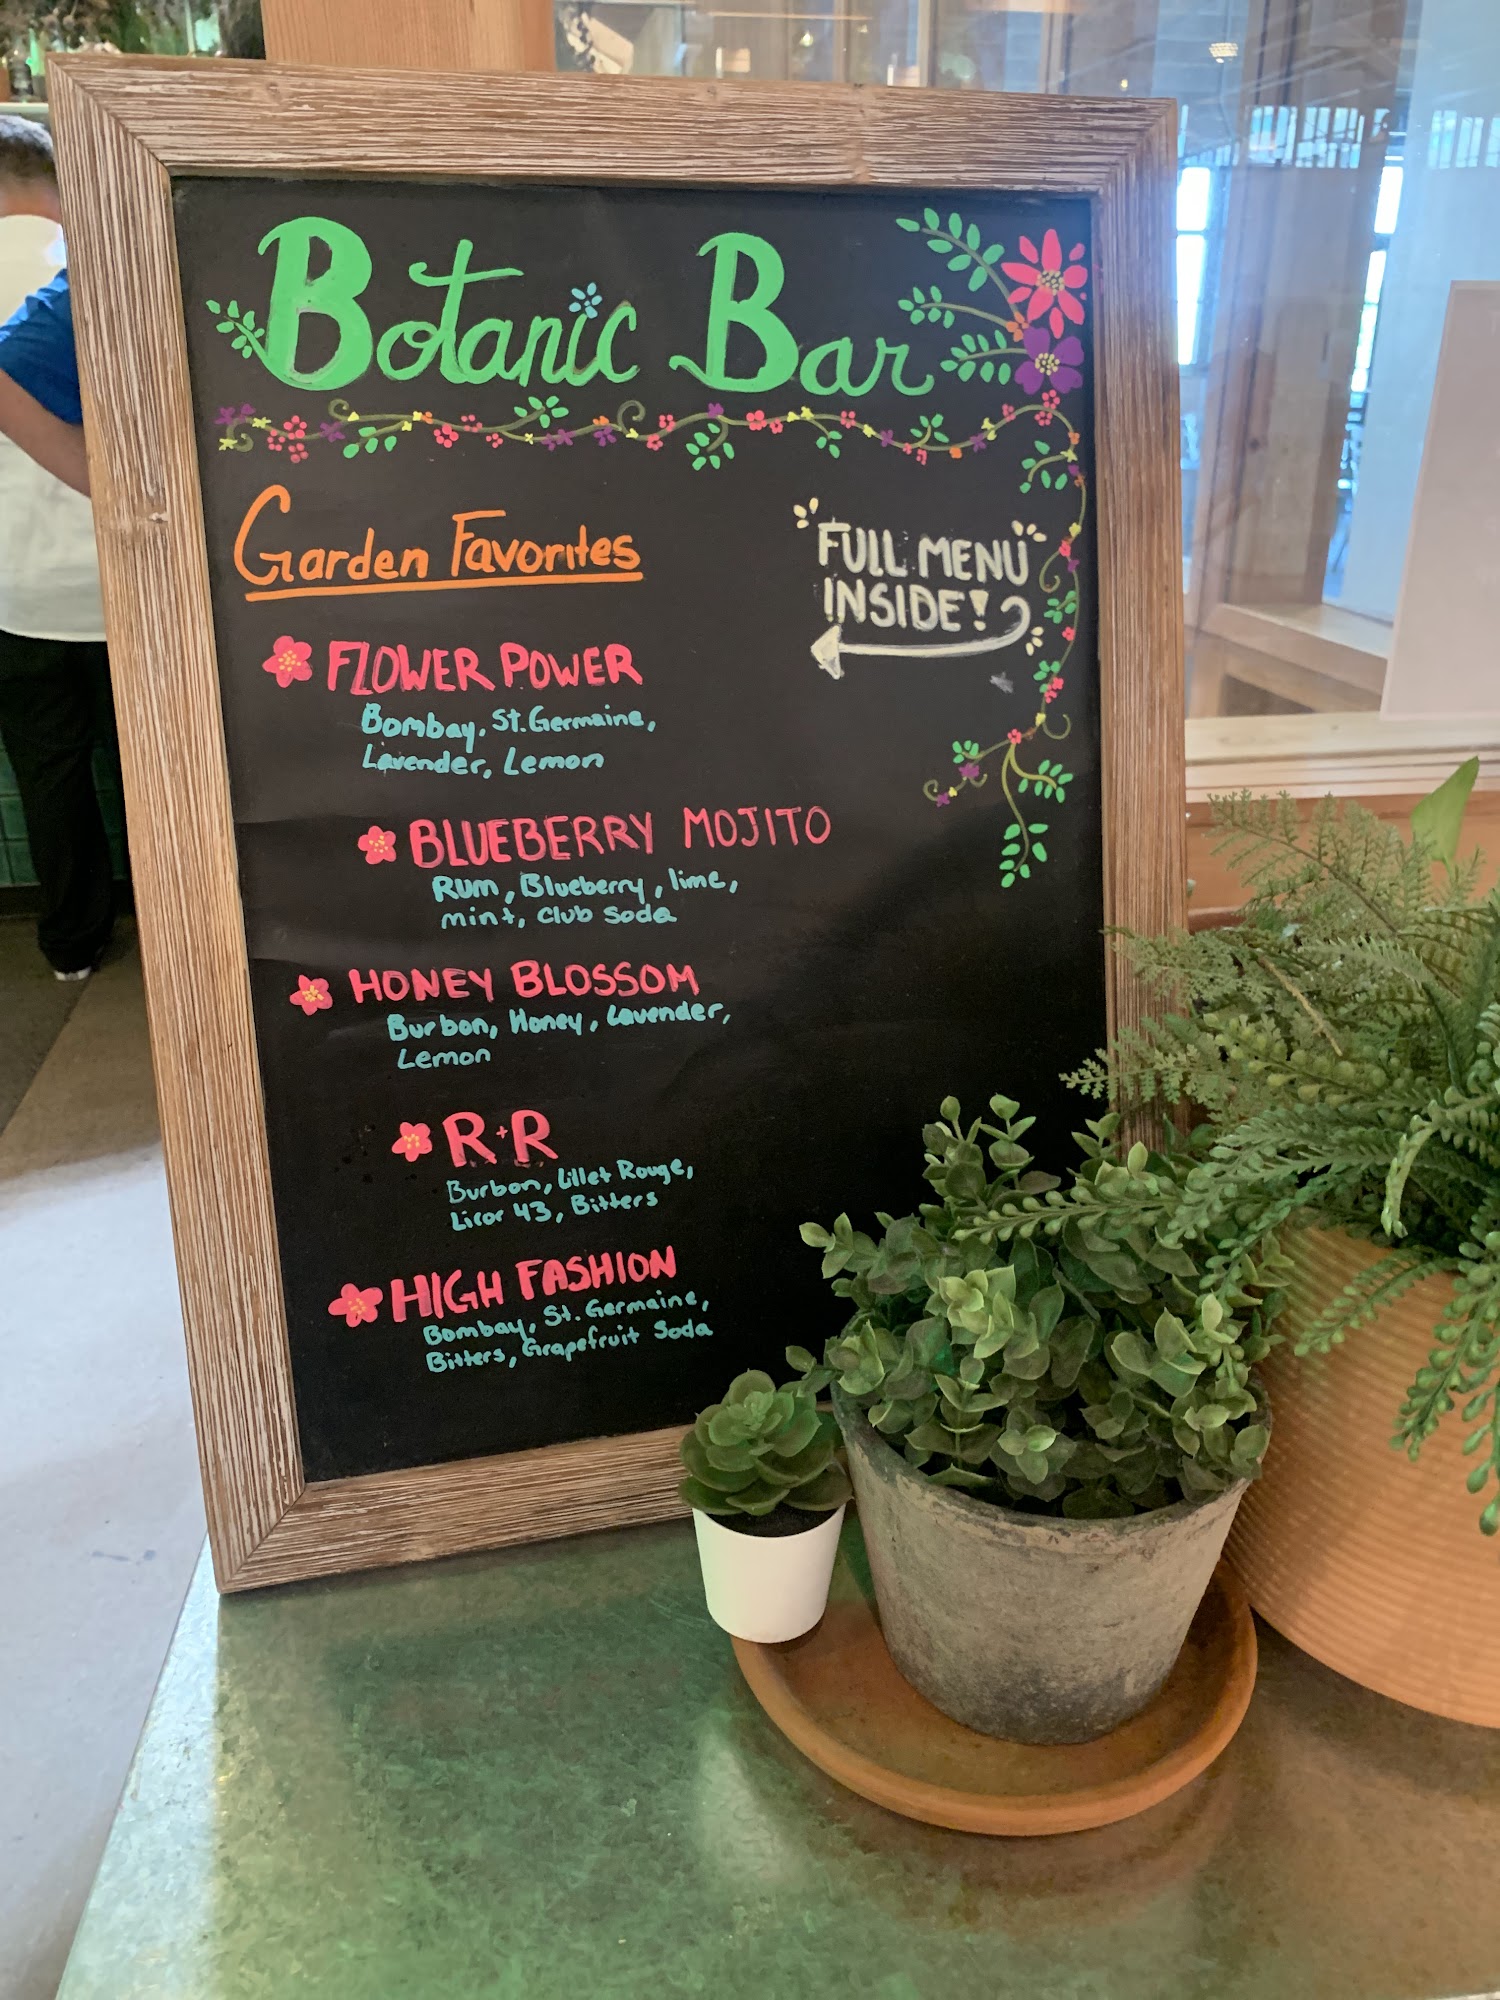 Botanic Bar
Garden Favorites
FULL MENU
INSIDE!
FLOWER POWER
Bombay, St. Germaine,
Lavender, Lemon
BLUEBERRY MOJITO
Rum, Blueberry, lime,
mint, Club Soda
HONEY BLOSSOM
Burbon, Honey, Lavender,
Lemon
R+R
Burbon, Lillet Rouge,
Licor 43, Bitters
HIGH FASHION
Bombay, St. Germaine,
Bitters, Grapefruit Soda